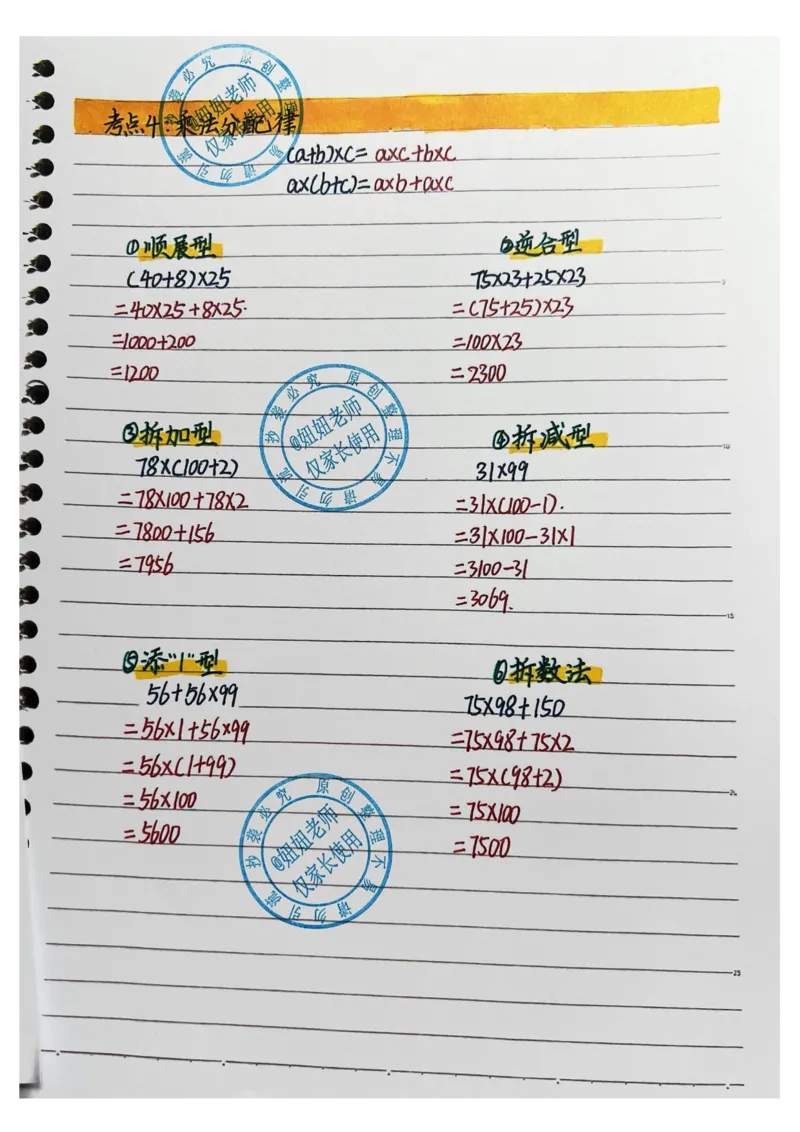 考点4:乘法分配律
(a+b)×c=a×c+b×c
a×(b+c)=a×b+a×c
①顺展型
(40+8)×25
=40×25+8×25
=1000+200
=1200
②逆合型
75×23+25×23
=(75+25)×23
=100×23
=2300
③拆加型
78×(100+2)
=78×100+78×2
=7800+156
=7956
④拆减型
31×99
=31×(100-1)
=31×100-31×1
=3100-31
=3069
⑤添"1"型
56+56×99
=56×1+56×99
=56×(1+99)
=56×100
=5600
⑥拆数法
75×98+150
=75×98+75×2
=75×(98+2)
=75×100
=7500
原创整理不易 请勿引流 抄袭必究
@妞妞老师
仅家长使用
原创整理不易 请勿引流 抄袭必究
@妞妞老师
仅家长使用
原创整理不易 请勿引流 抄袭必究
@妞妞老师
仅家长使用
9
15
25